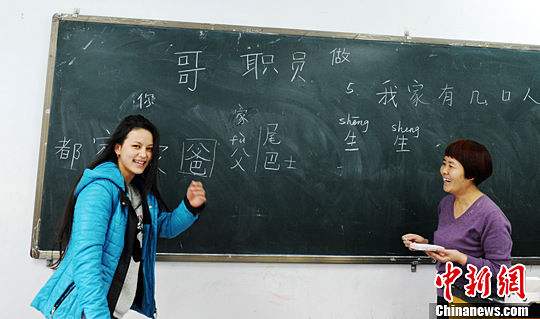 哥 职员 做
5. 我家有几口人
你
家
shēng sheng
都 家 爸 fù 父 尾巴 士 生 生
中新网
Chinanews.com